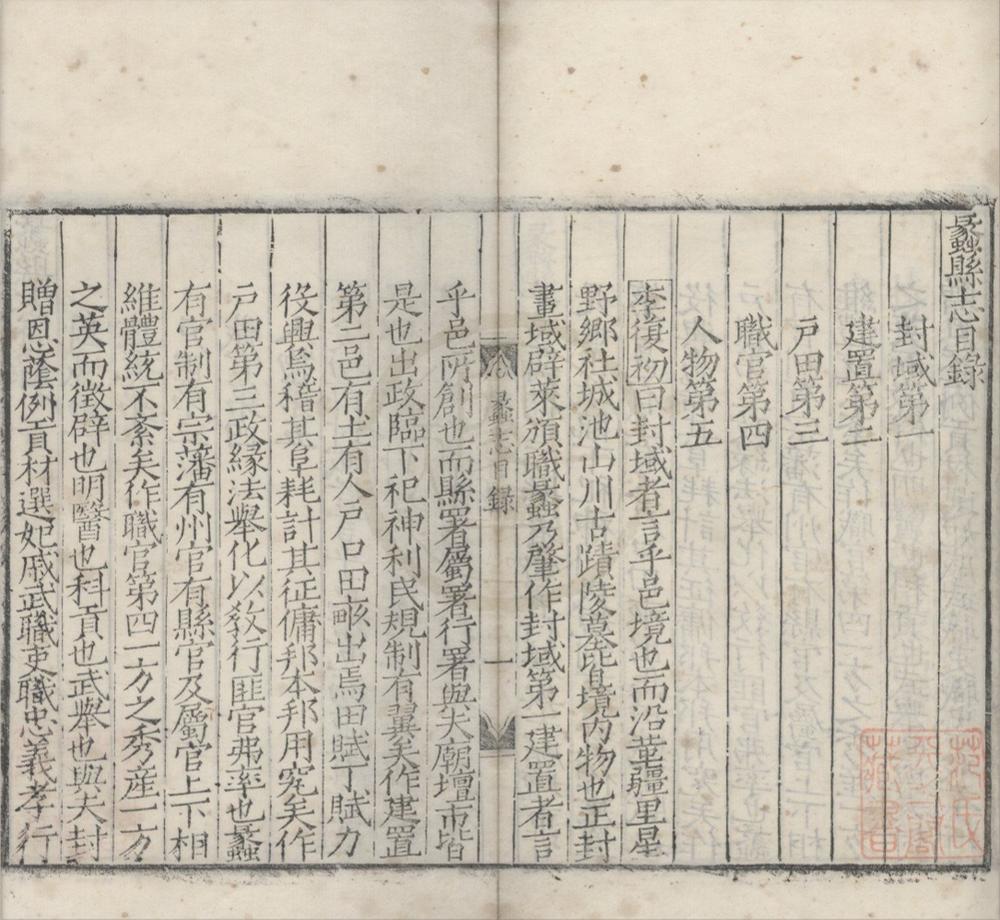 蠡縣志目錄
封域第一
建置第二
戶田第三
職官第四
人物第五
李復初曰封域者言乎邑境也而沿革疆里星
野鄉社城池山川古蹟陵墓皆境內物也正封
畫域辟萊頒職蠡乃肇作封域第一建置者言
蠡志目錄
一
乎邑所創也而縣署屬署行署與夫廟壇市皆
是也出政臨下祀神利民規制有翼矣作建置
第二邑有土有人戶口田畝出焉田賦丁賦力
役興焉稽其阜耗計其征傭邦本邦用究矣作
戶田第三政緣法舉化以敎行匪官弗率也蠡
有官制有宗藩有州官有縣官及屬官上下相
維體統不紊矣作職官第四一方之秀產一方
之英而徵辟也明醫也科貢也武舉也與夫封
贈恩蔭例貢材選妃戚武職吏職忠義孝行
范氏天一閣藏書